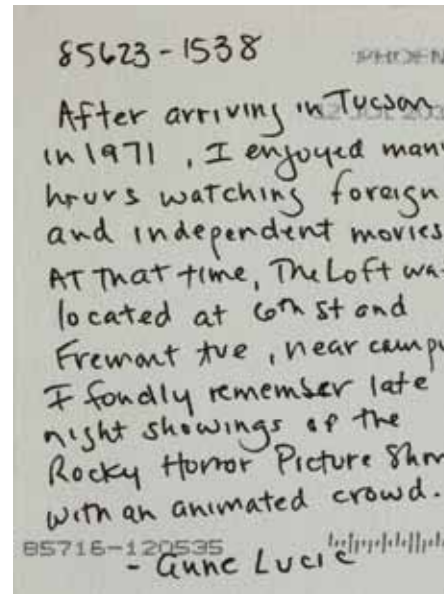 85623-1538
PHOEN
After arriving in Tucson
02 JUL 20
in 1971, I enjoyed man
hours watching foreign
and independent movies
AT That time, The Loft wa
located at 6th St and
Fremont Ave, near camp
I fondly remember late
night showings of the
Rocky Horror Picture Show
with an animated crowd.
85716-120535
- Anne Lucie